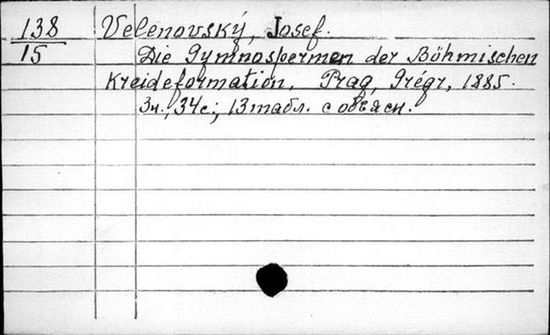 138 Velenovský, Josef.
15 Die Gymnospermen der Böhmischen
Kreideformation. Prag, Grégr, 1885.
3н., 34с.; 13 табл. с объясн.